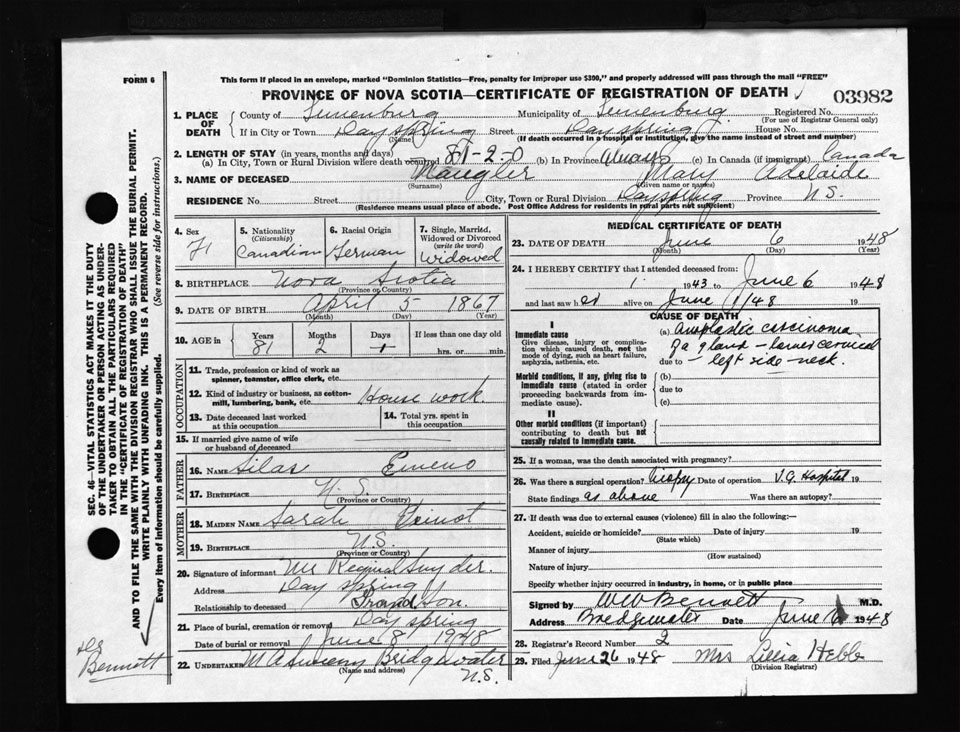 FORM 6
This form if placed in an envelope, marked "Dominion Statistics—Free, penalty for improper use $300," and properly addressed will pass through the mail "FREE"
PROVINCE OF NOVA SCOTIA—CERTIFICATE OF REGISTRATION OF DEATH
03982
1. PLACE OF DEATH
County of Lunenburg Municipality of Lunenburg Registered No.
(For use of Registrar General only)
If in City or Town Dayspring Street Dayspring House No.
(Name) (If death occurred in a hospital or institution, give the name instead of street and number)
2. LENGTH OF STAY (in years, months and days)
(a) In City, Town or Rural Division where death occurred 81-2-0 (b) In Province Always (c) In Canada (if immigrant) Canada
3. NAME OF DECEASED Naugler Mary Adelaide
(Surname) (Given name or names)
RESIDENCE No. Street City, Town or Rural Division Dayspring Province N.S.
(Residence means usual place of abode. Post Office Address for residents in rural parts not sufficient)
4. Sex F
5. Nationality (Citizenship) Canadian
6. Racial Origin German
7. Single, Married, Widowed or Divorced (write the word) Widowed
8. BIRTHPLACE Nova Scotia
(Province or Country)
9. DATE OF BIRTH April 5 1867
(Month) (Day) (Year)
10. AGE Years 81 Months 2 Days 1 If less than one day old
hrs. or min.
OCCUPATION
11. Trade, profession or kind of work as spinner, teamster, office clerk, etc.
12. Kind of industry or business, as cotton-mill, lumbering, bank, etc. House work
13. Date deceased last worked at this occupation
14. Total yrs. spent in this occupation
15. If married give name of wife or husband of deceased
FATHER
16. NAME Silas Emeno
17. BIRTHPLACE N.S.
(Province or Country)
MOTHER
18. MAIDEN NAME Sarah Veinot
19. BIRTHPLACE N.S.
(Province or Country)
20. Signature of informant Mr Reginal Snyder.
Address Dayspring
Relationship to deceased Grandson.
21. Place of burial, cremation or removal Dayspring
Date of burial or removal June 8 1948
22. UNDERTAKER Bridgewater
(Name and address)
N.S.
MEDICAL CERTIFICATE OF DEATH
23. DATE OF DEATH June 6 1948
(Month) (Day)
24. I HEREBY CERTIFY that I attended deceased from:
1943 to June 6 1948
and last saw her alive on June /48 19
CAUSE OF DEATH
I
Immediate cause
Give disease, injury or complication which caused death, not the mode of dying, such as heart failure, asphyxia, asthenia, etc.
(a) Anaplastic carcinoma
of a gland - lower cervical
due to - left side - neck.
Morbid conditions, if any, giving rise to immediate cause (stated in order proceeding backwards from immediate cause).
(b)
due to
(c)
II
Other morbid conditions (if important) contributing to death but not causally related to immediate cause.
25. If a woman, was the death associated with pregnancy?
26. Was there a surgical operation? biopsy Date of operation V.G. Hospital 19
State findings as above Was there an autopsy?
27. If death was due to external causes (violence) fill in also the following:—
Accident, suicide or homicide? Date of injury 19
(State which)
Manner of injury
(How sustained)
Nature of injury
Specify whether injury occurred in industry, in home, or in public place
Signed by W W Bennett M.D.
Address Bridgewater Date June 1948
28. Registrar's Record Number 2
29. Filed June 26 1948 Mrs Lillia Hebb
(Division Registrar)
SEC. 46—VITAL STATISTICS ACT MAKES IT THE DUTY
OF THE UNDERTAKER OR PERSON ACTING AS UNDER-
TAKER TO OBTAIN ALL THE PARTICULARS REQUIRED
IN THE "CERTIFICATE OF REGISTRATION OF DEATH"
AND TO FILE THE SAME WITH THE DIVISION REGISTRAR WHO SHALL ISSUE THE BURIAL PERMIT.
WRITE PLAINLY WITH UNFADING INK. THIS IS A PERMANENT RECORD.
Every item of information should be carefully supplied. (See reverse side for instructions.)
Dr
Bennett